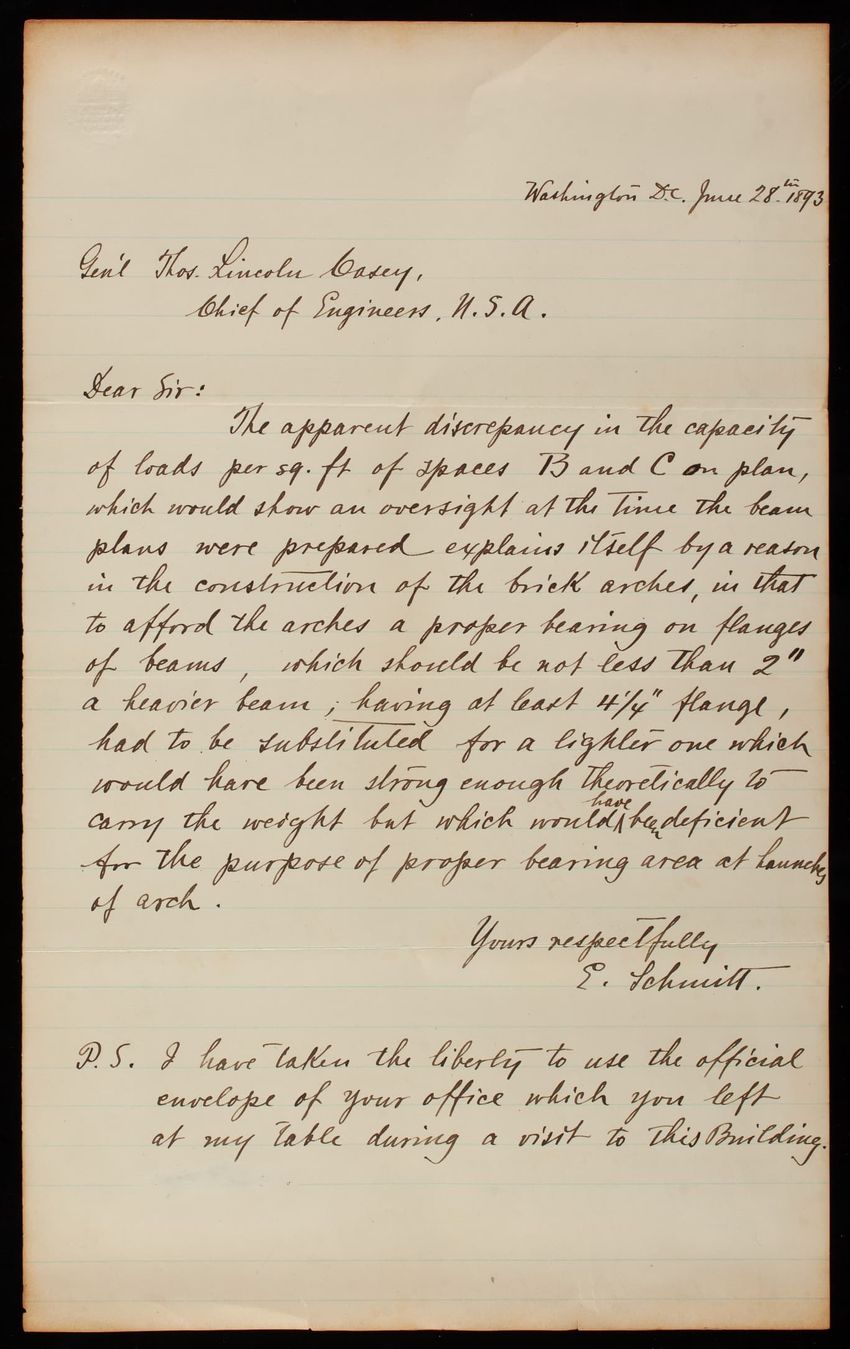 Washington D.C. June 28.th 1893
Gen'l Thos. Lincoln Casey,
Chief of Engineers, U.S.A.
Dear Sir:
The apparent discrepancy in the capacity
of loads per sq. ft of spaces B and C on plan,
which would show an oversight at the time the beam
plans were prepared explains itself by a reason
in the construction of the brick arches, in that
to afford the arches a proper bearing on flanges
of beams, which should be not less than 2"
a heavier beam, having at least 4 1/4" flange,
had to be substituted for a lighter one which
would have been strong enough theoretically to
carry the weight but which would have been deficient
for the purpose of proper bearing area at haunches
of arch.
Yours respectfully
E. Schmitt.
P.S. I have taken the liberty to use the official
envelope of your office which you left
at my table during a visit to this Building.